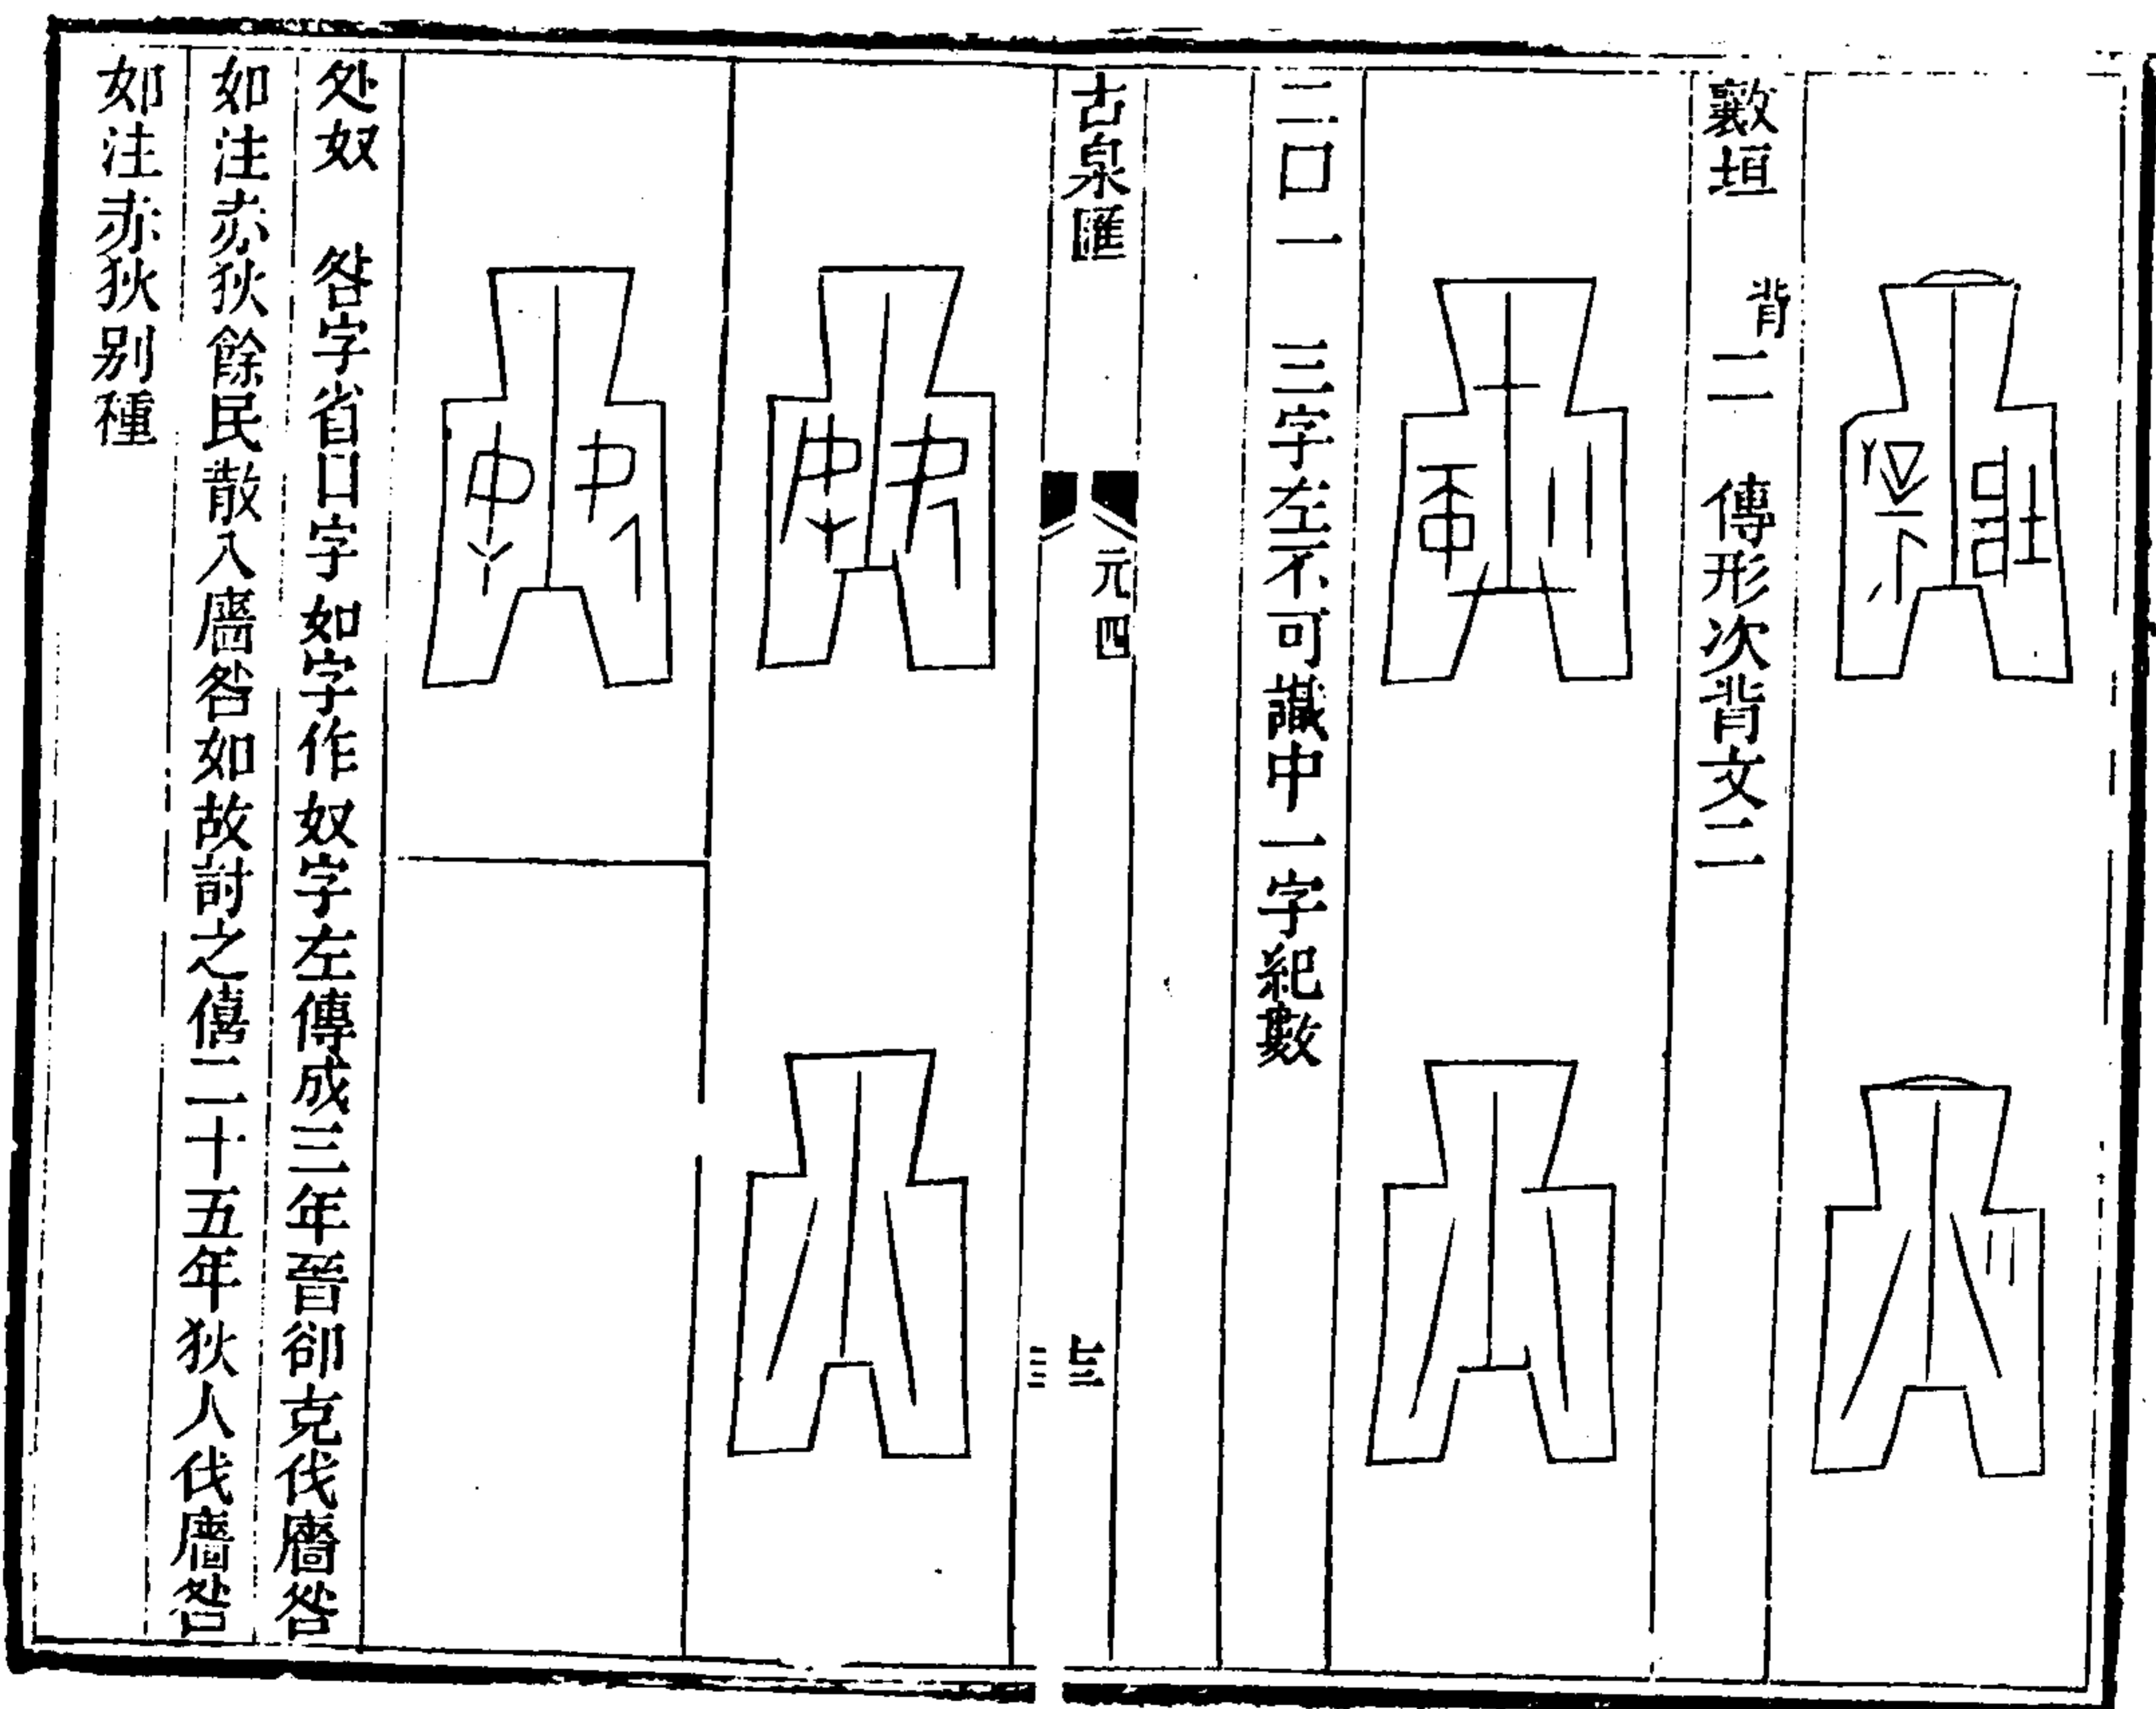 垣 背二 傳形次背文二
二口一 三字左不可識中一字紀數
古泉匯 元四
处奴 咎字省口字如字作奴字左傳成三年晉郤克伐廧咎
如注赤狄餘民散入廧咎如故討之僖二十五年狄人伐廧咎
如注赤狄别種